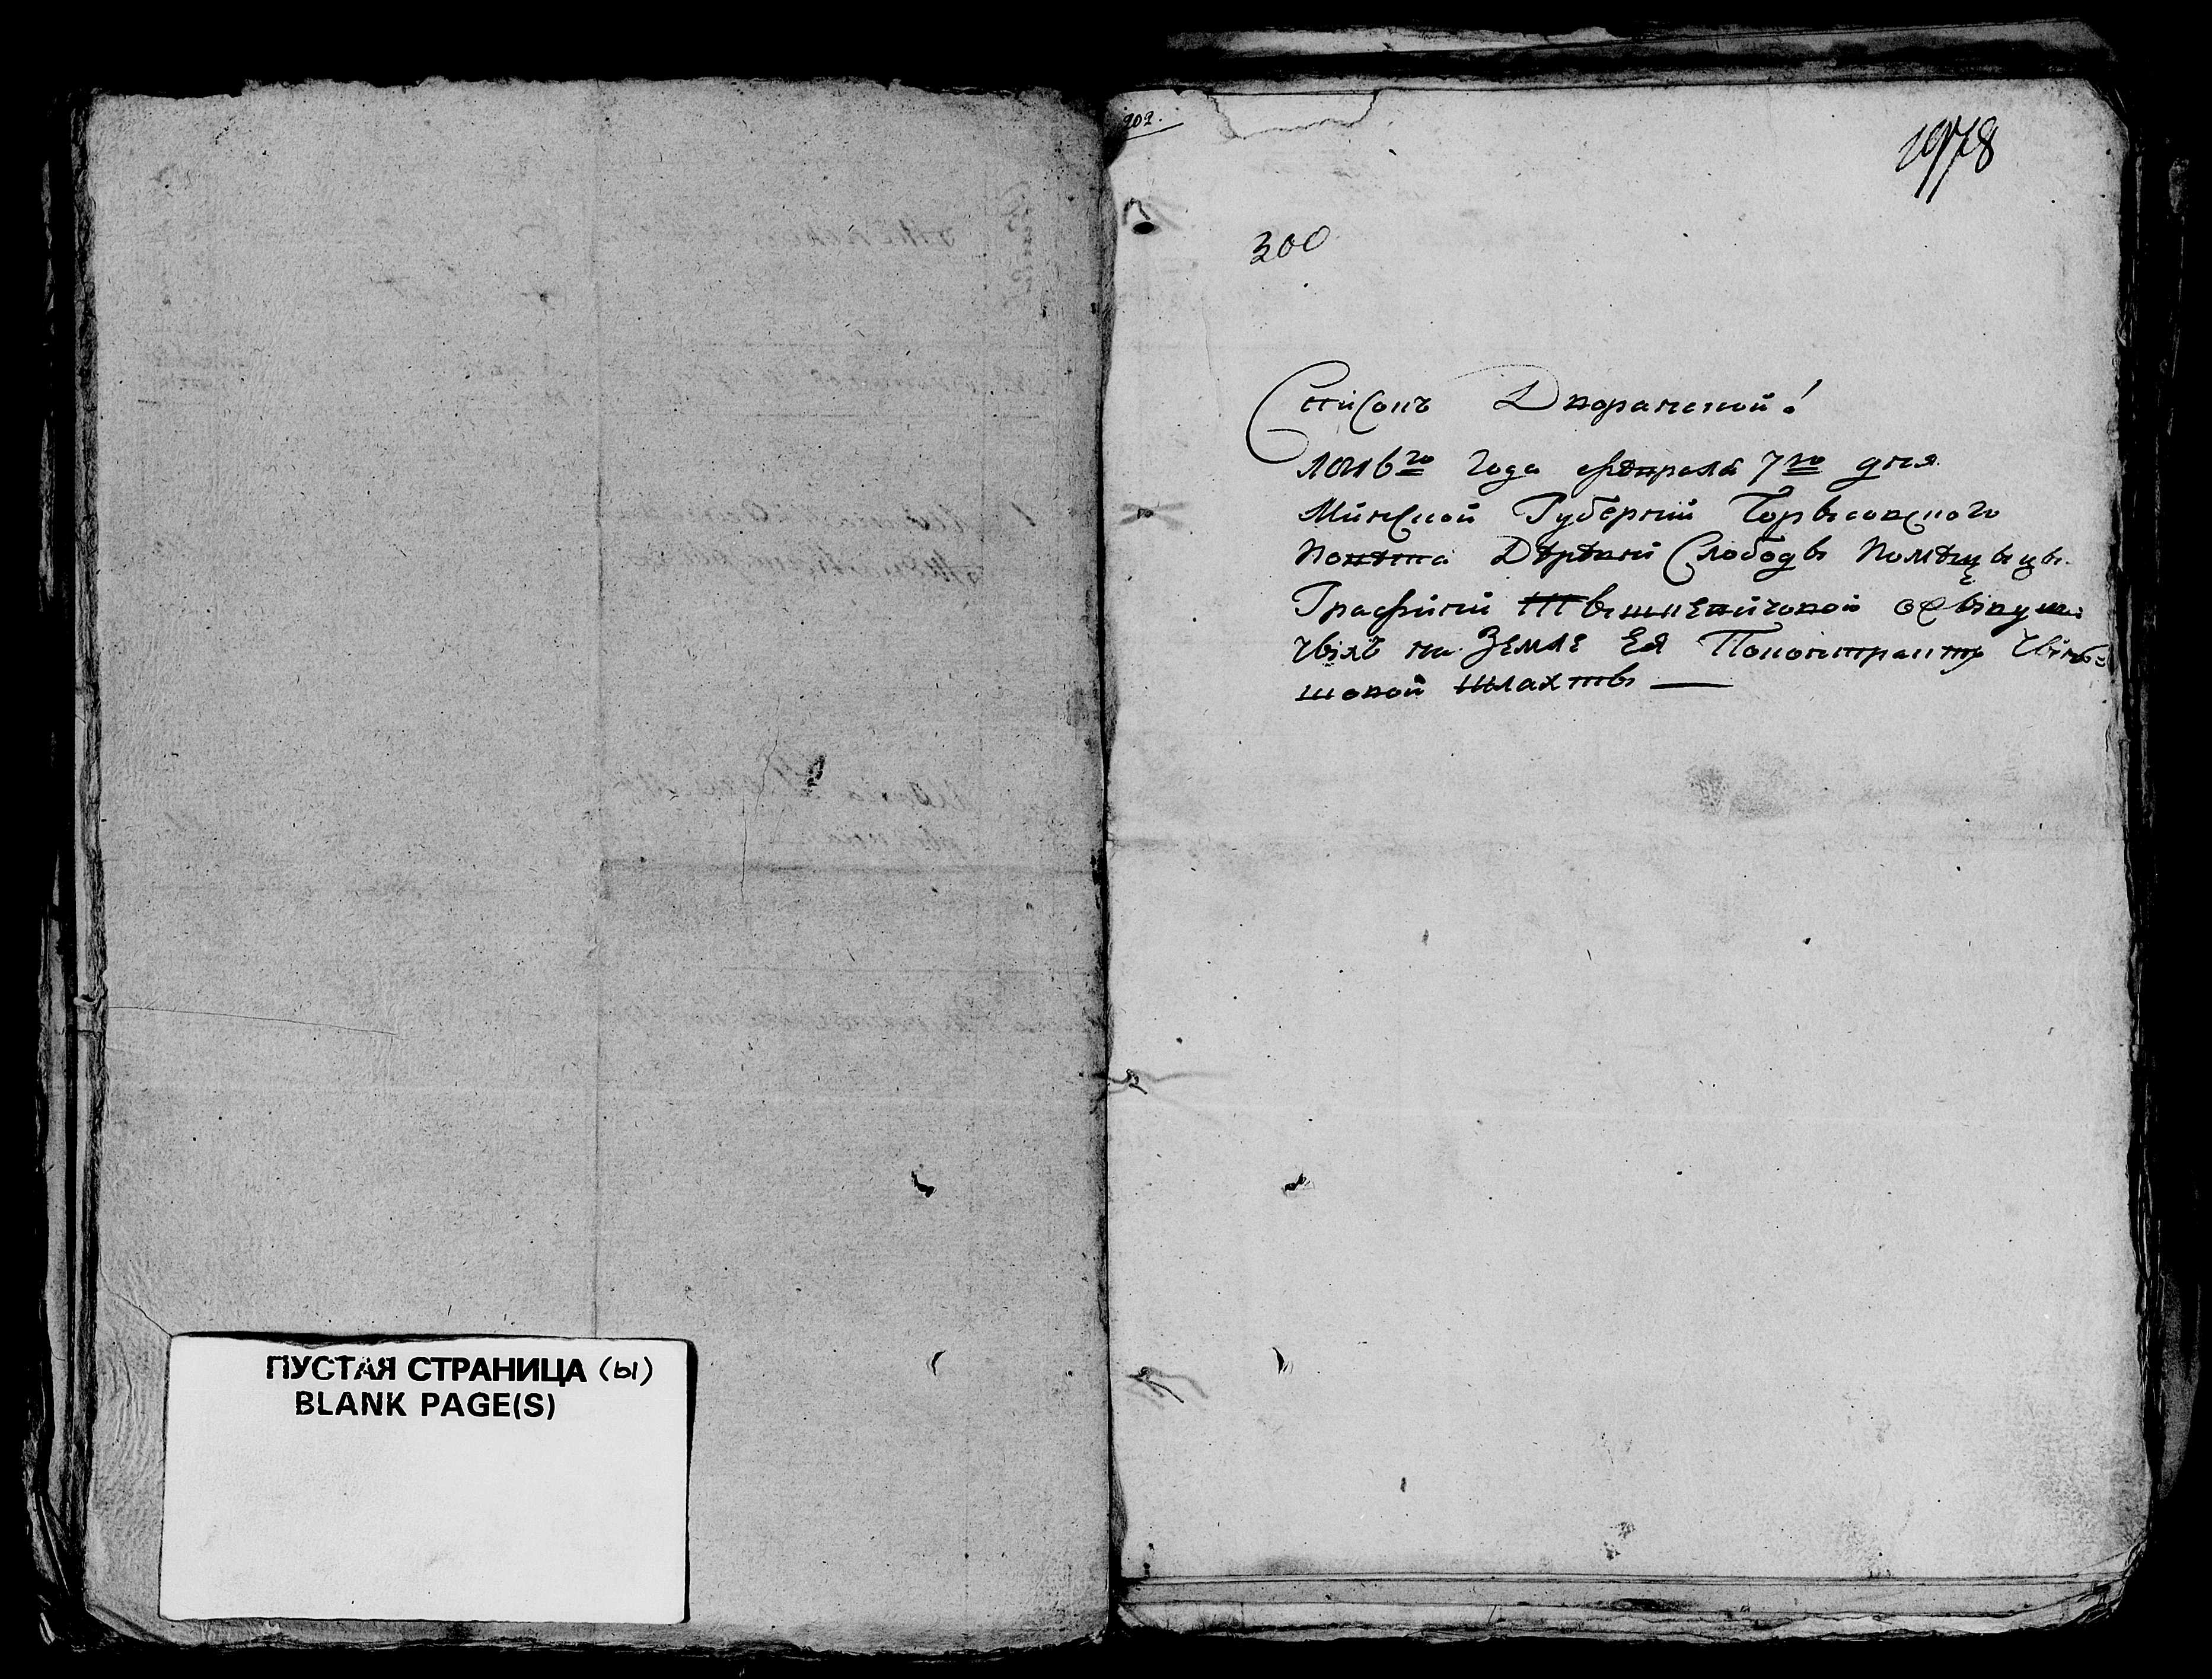 202.
1978
300
Списокъ Дворянской!
1816го года февраля 7го дня
Минской Губерний Борысовского
Повѣта Дѣревни Слободы Помѣщыцы
Графиний Тышкевичовой
на Земле Ея По контракту Чын-
шовой Шляхты —
ПУСТАЯ СТРАНИЦА (ы)
BLANK PAGE(S)